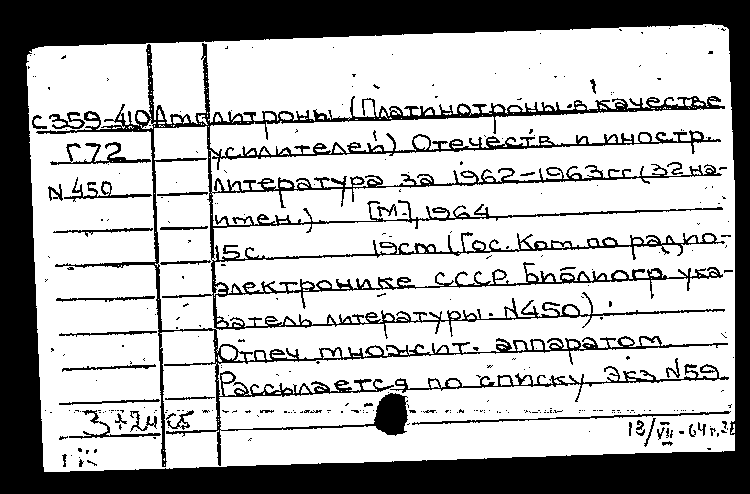 С359-410 Амплитроны (Платинотроны в качестве
Г72 усилителей) Отечеств. и иностр.
N 450 литература за 1962-1963гг. (32 на-
имен.). [М.], 1964.
15с. 19см (Гос. Ком. по радио-
электронике СССР. Библиогр. ука-
затель литературы. N450).
Отпеч. множит. аппаратом
Рассылается по списку. Экз N59
3+2и
13/VII-64г.